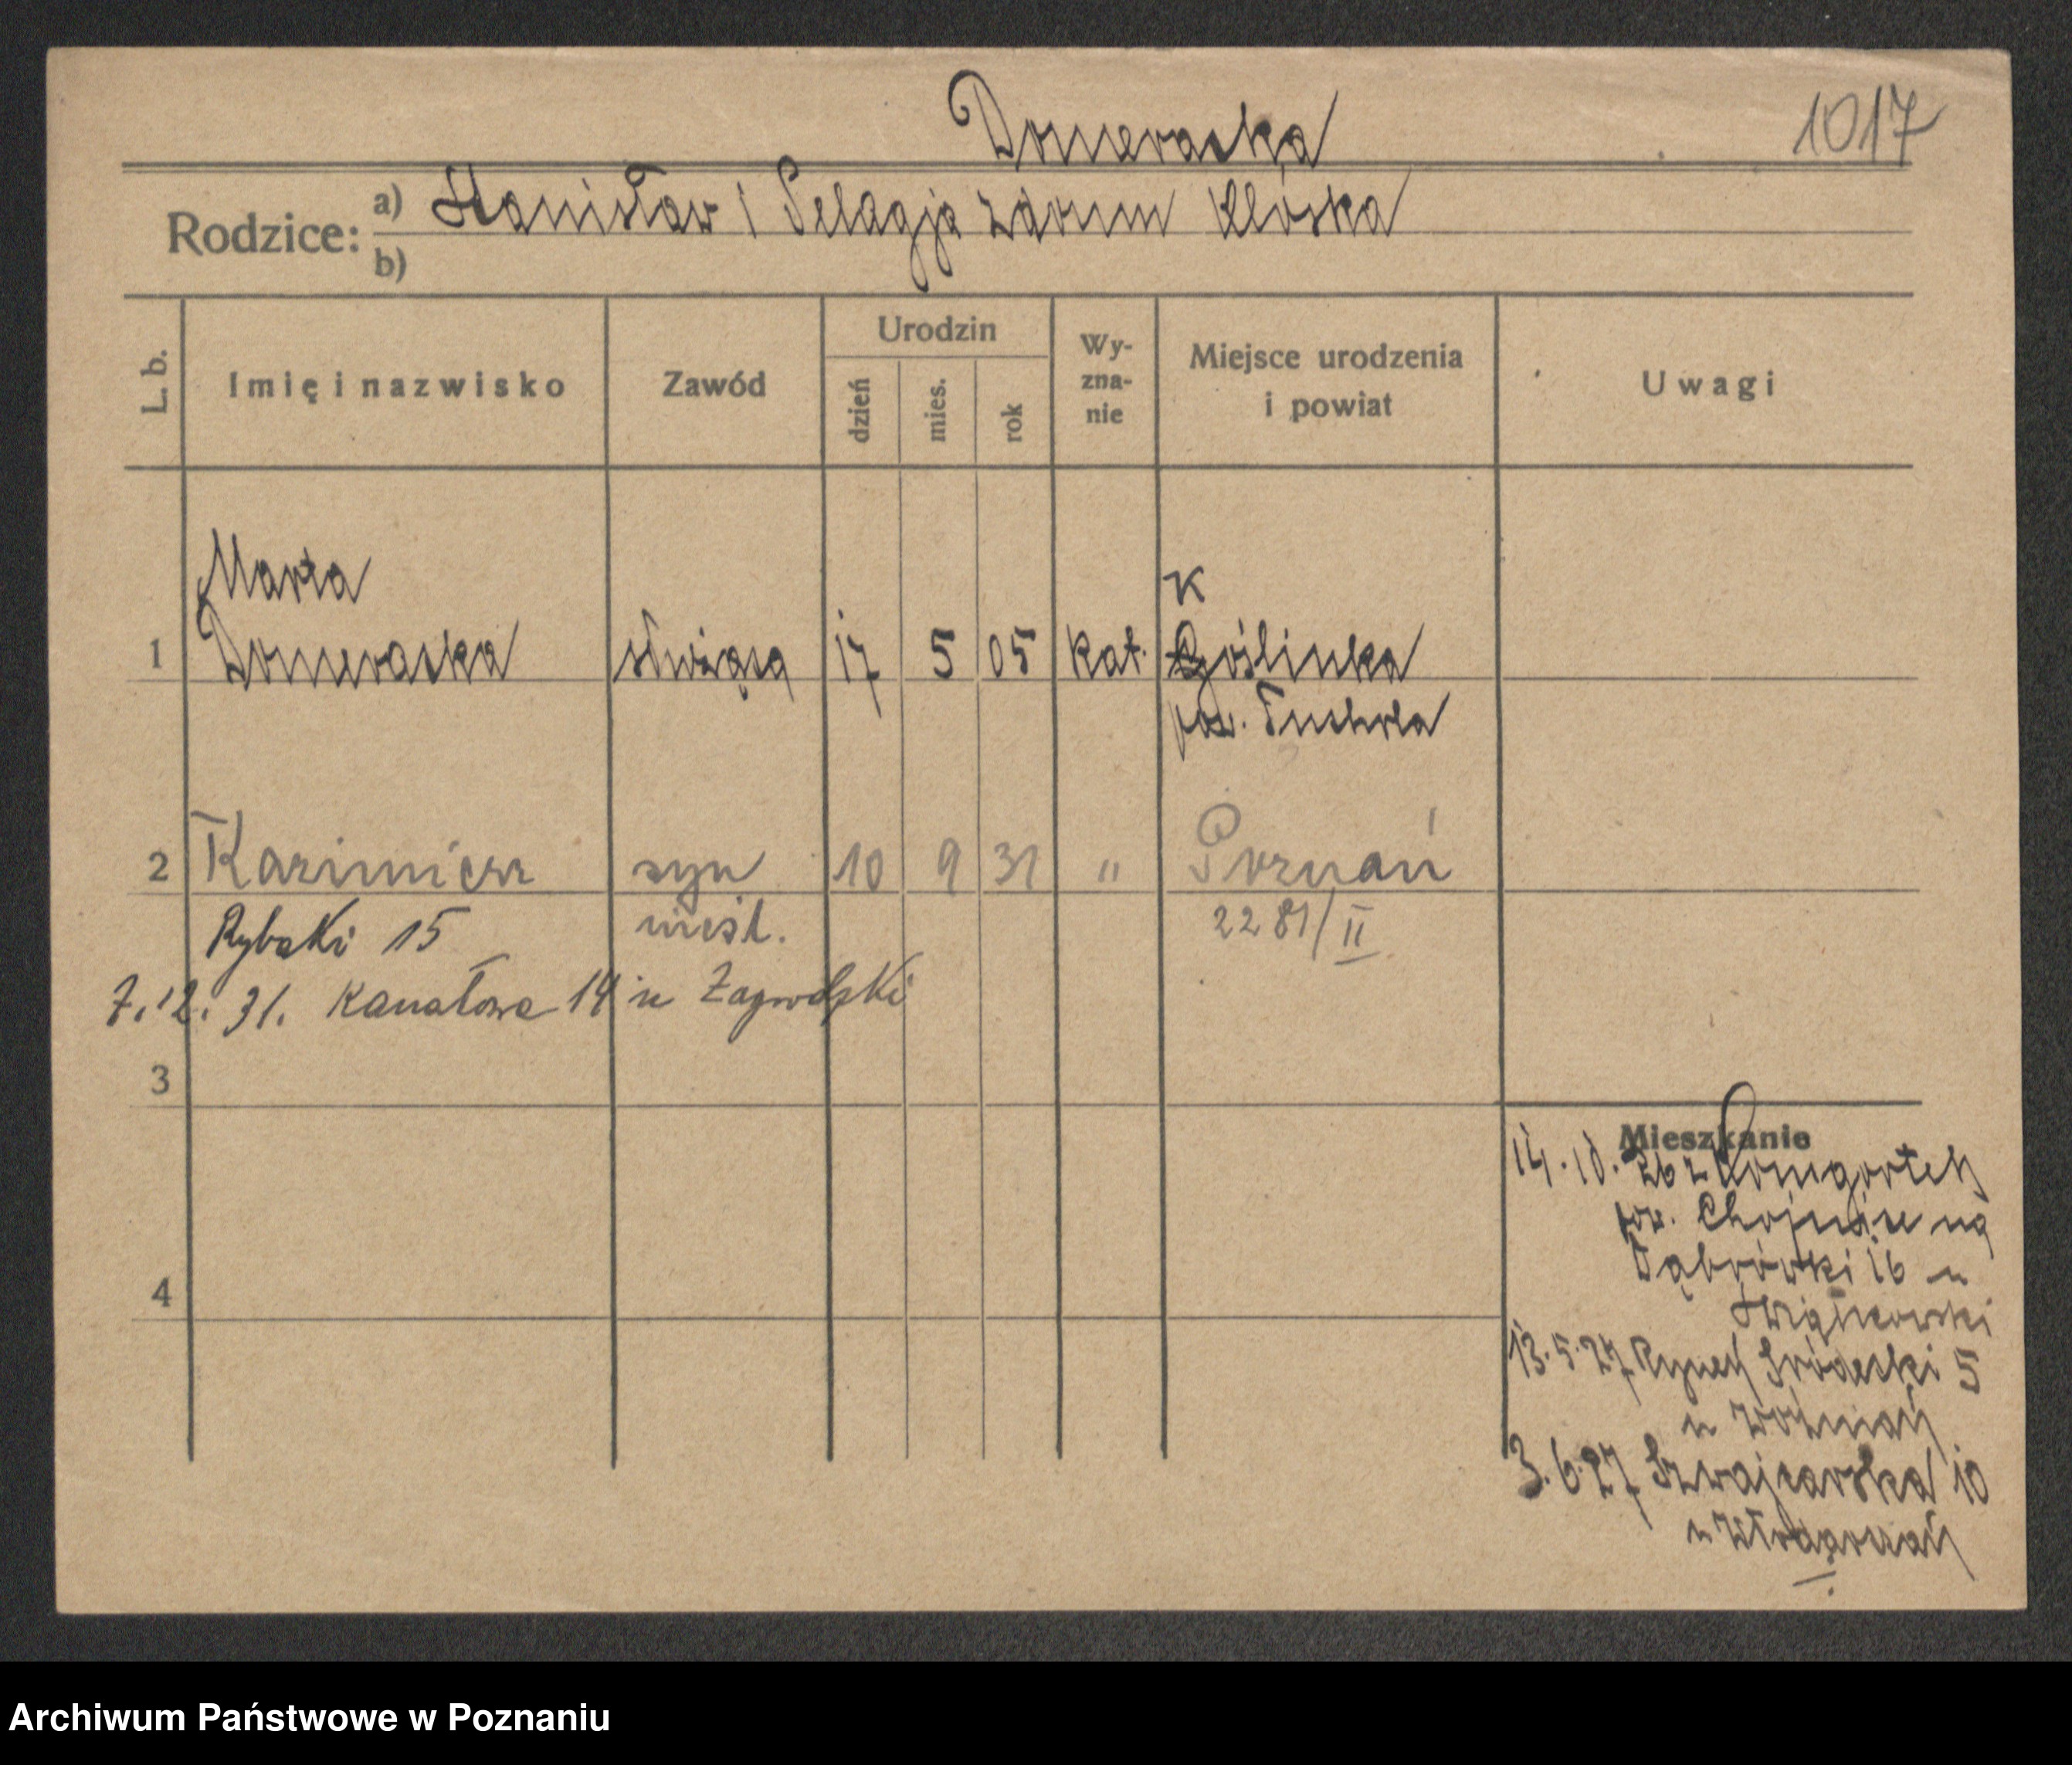 Domeracka
1017
Rodzice: a) Stanisław i Pelagja z domu Klóska
b)
L. b.
Imię i nazwisko
Zawód
Urodzin
dzień
mies.
rok
Wy-
zna-
nie
Miejsce urodzenia
i powiat
Uwagi
Marta
K
1 Domeracka służąca 17 5 05 kat. Goślinka
pow. Tuchola
2 Kazimierz syn 10 9 31 " Poznań
Rybaki 15 nieśl. 2281/II
7.12.31. Kanałowa 14 u Zagrodzki
3
Mieszkanie
14.10.26 z
pow. Chojnice na
Dąbrówki 16 u
4
13.5.27 Rynek Śródecki 5
u Woźniak
3.6.27 Szwajcarska 10
u Włodarczak
Archiwum Państwowe w Poznaniu